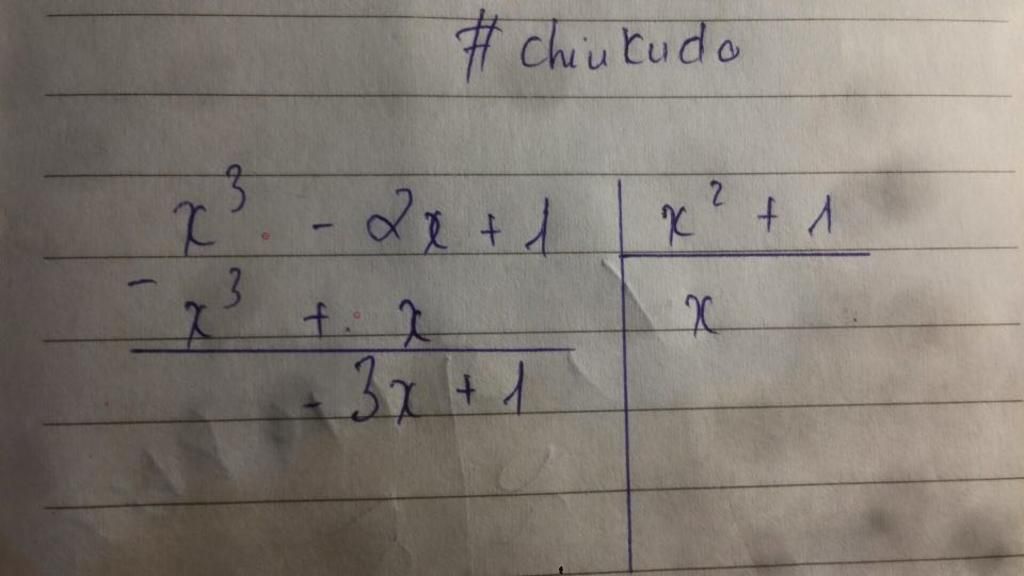 # chiukudo
x³ - 2x + 1 | x² + 1
- x³ + x | x
- 3x + 1